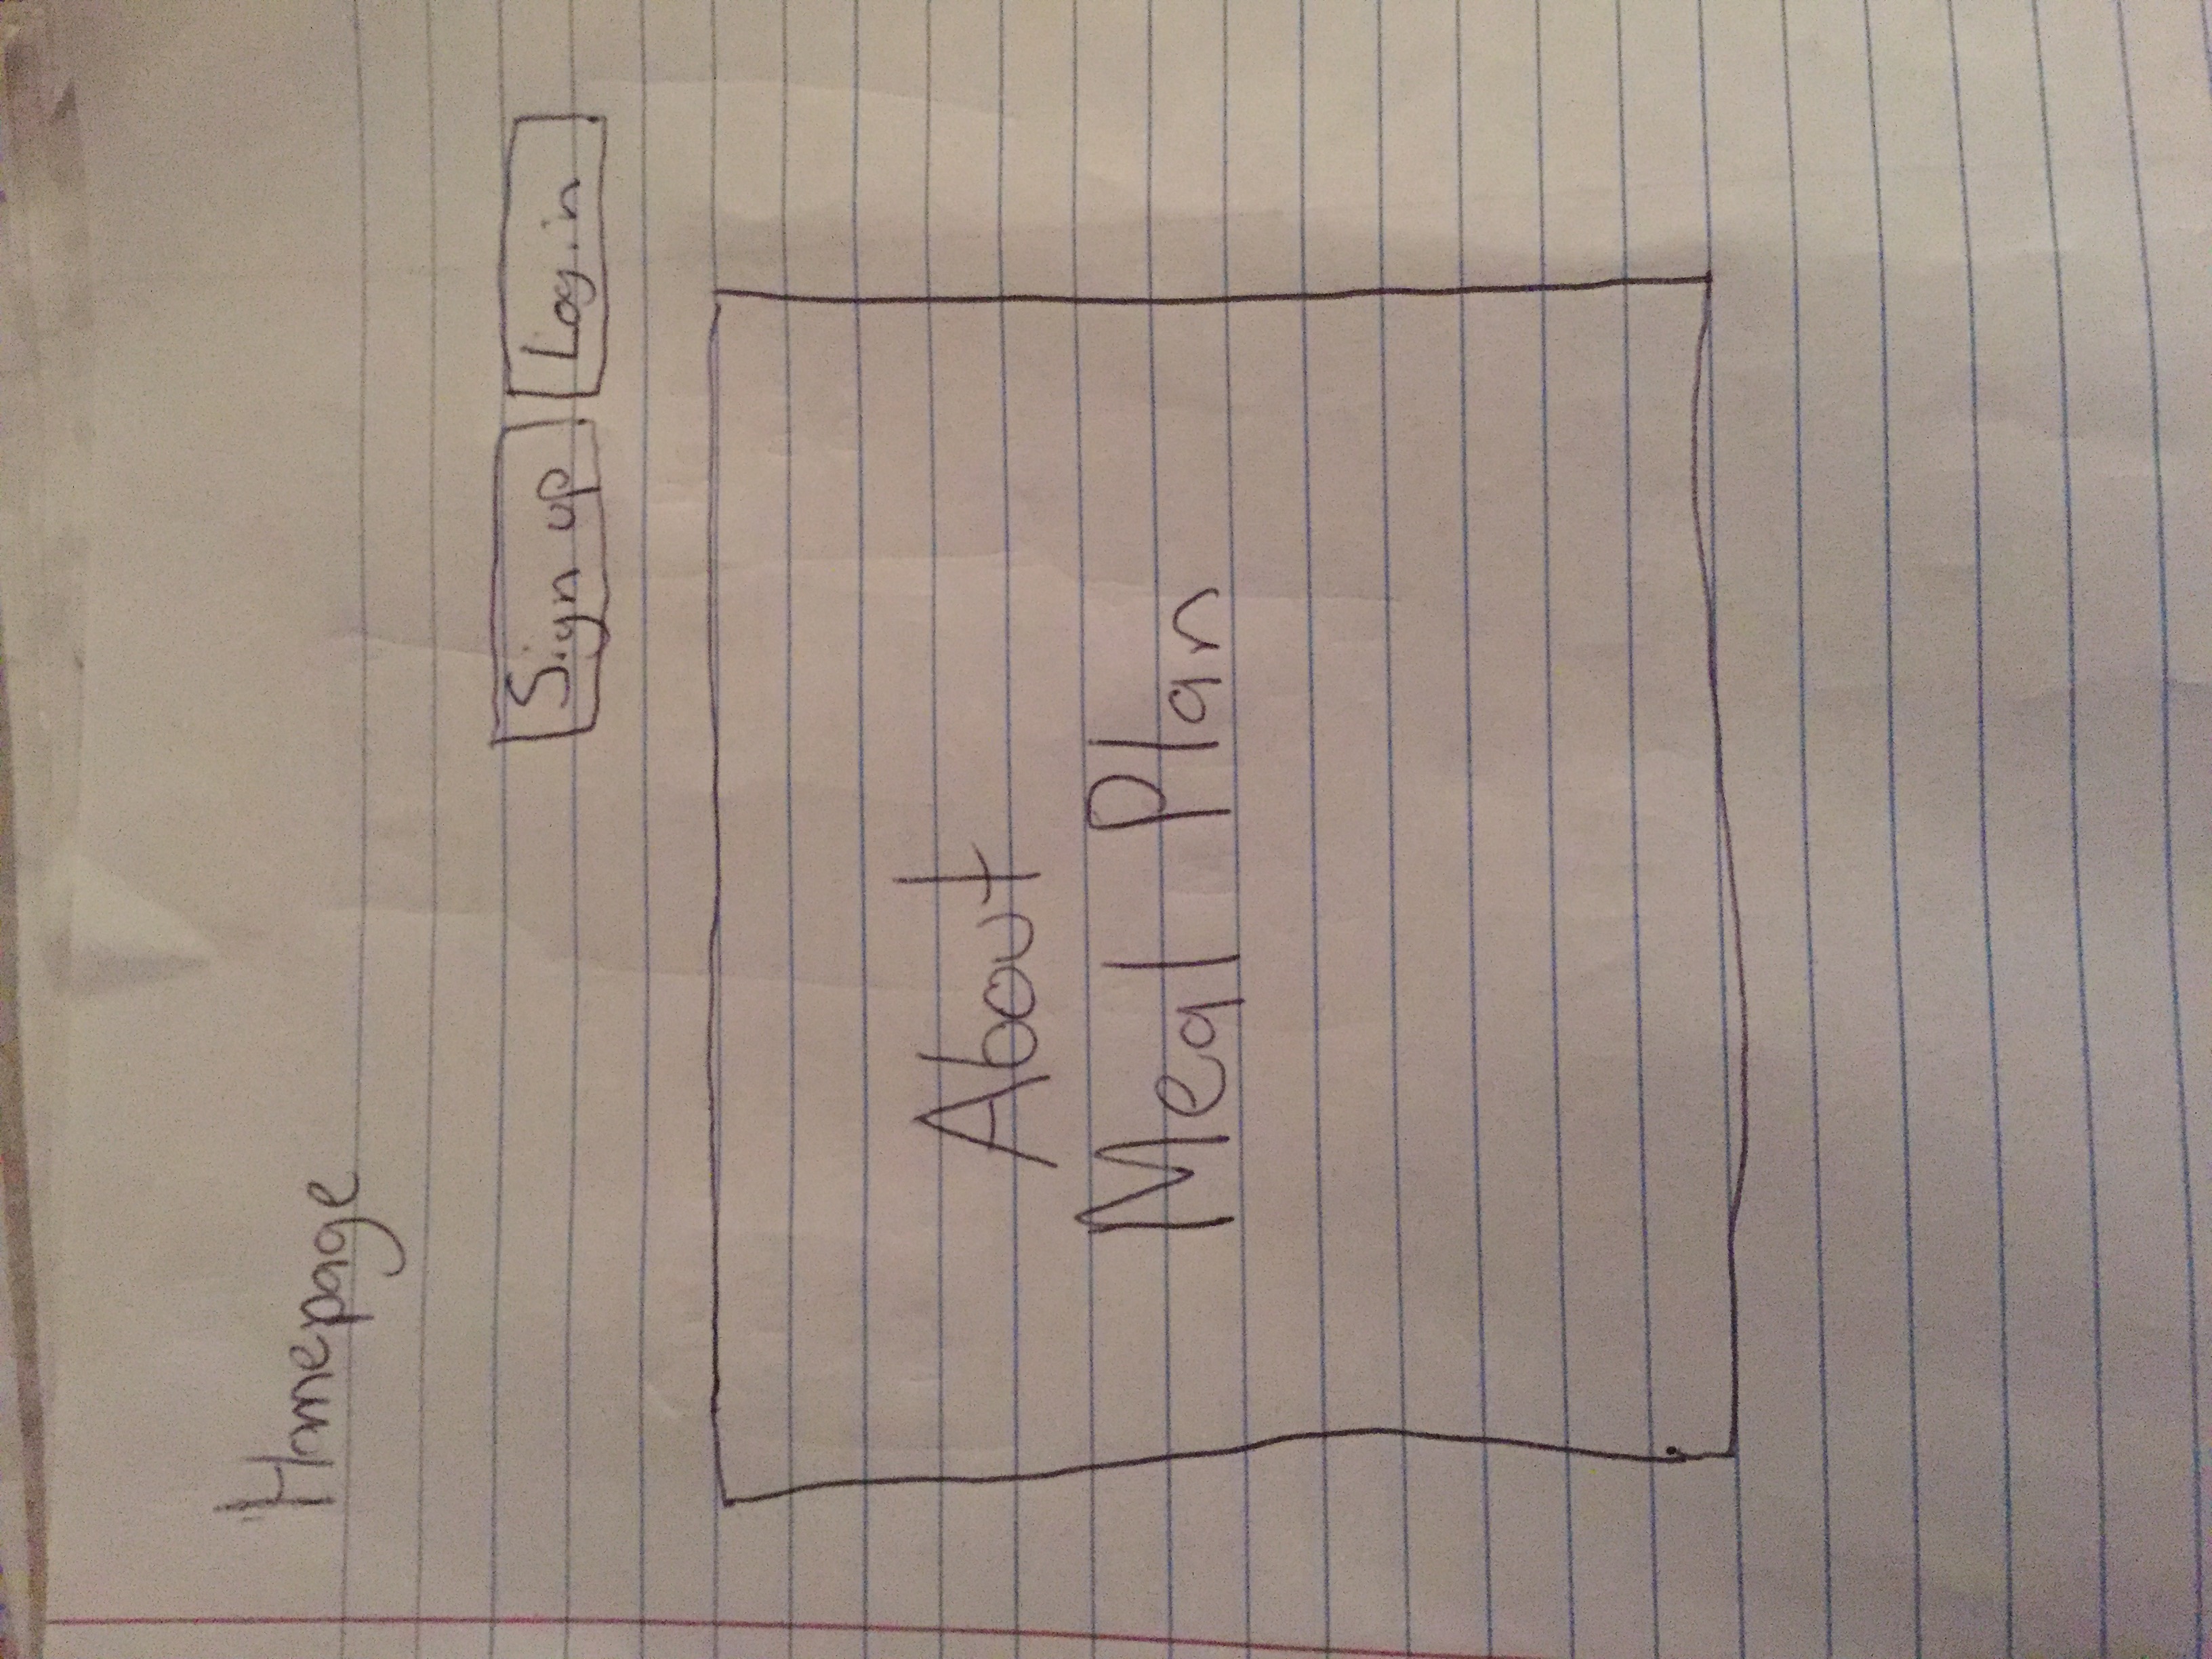 Homepage
Sign up Login
About
Meal Plan